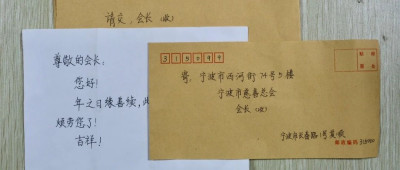 请交、会长（收）
尊敬的会长：
您好！
年之日缘喜续，此
烦劳您了！
吉祥！
315099
寄：宁波市西河街74号5楼
宁波市慈善总会
会长（收）
宁波市长春路1号
邮政编码